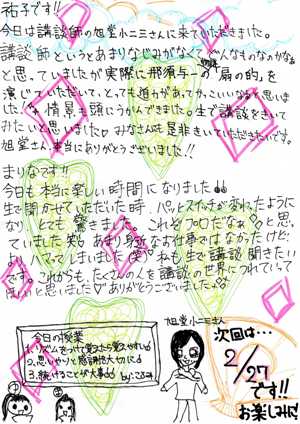 祐子です!!
今日は講談師の旭堂小二三さんに来ていただきました。
講談師というとあまりなじみがなくてどんなものなのかなぁ
と思っていましたが実際に那須与一の"扇の的"を
演じていただいて、とっても迫力があってかっこいいなと思い
ました!! 情景も頭にうかんできました。生で講談をきいて
みたいと思いました♡ みなさんも是非きいていただきたいです。
旭堂さん、本当にありがとうございました!!
まりなです!!
今日も本当に楽しい時間になりました
生で聞かせていただいた時、パッとスイッチが変わったように
なり、とても驚きました。これぞプロだなぁ と思っ
ていました笑 あまり身近なお仕事ではなかったけど、
よりハマってしまいました(笑) 私も生で講談聞きたい
です。これからも、たくさんの人を講談の世界につれていって
ほしいと思いました♡ ありがとうございました。
旭堂小二三さん
今日の授業
1.リズムをつけて覚えたら覚えやすい
2.思いやりと感謝を大切に
3.続けることが大事
by.こふみ
次回は…
2/27
です!!
お楽しみに!